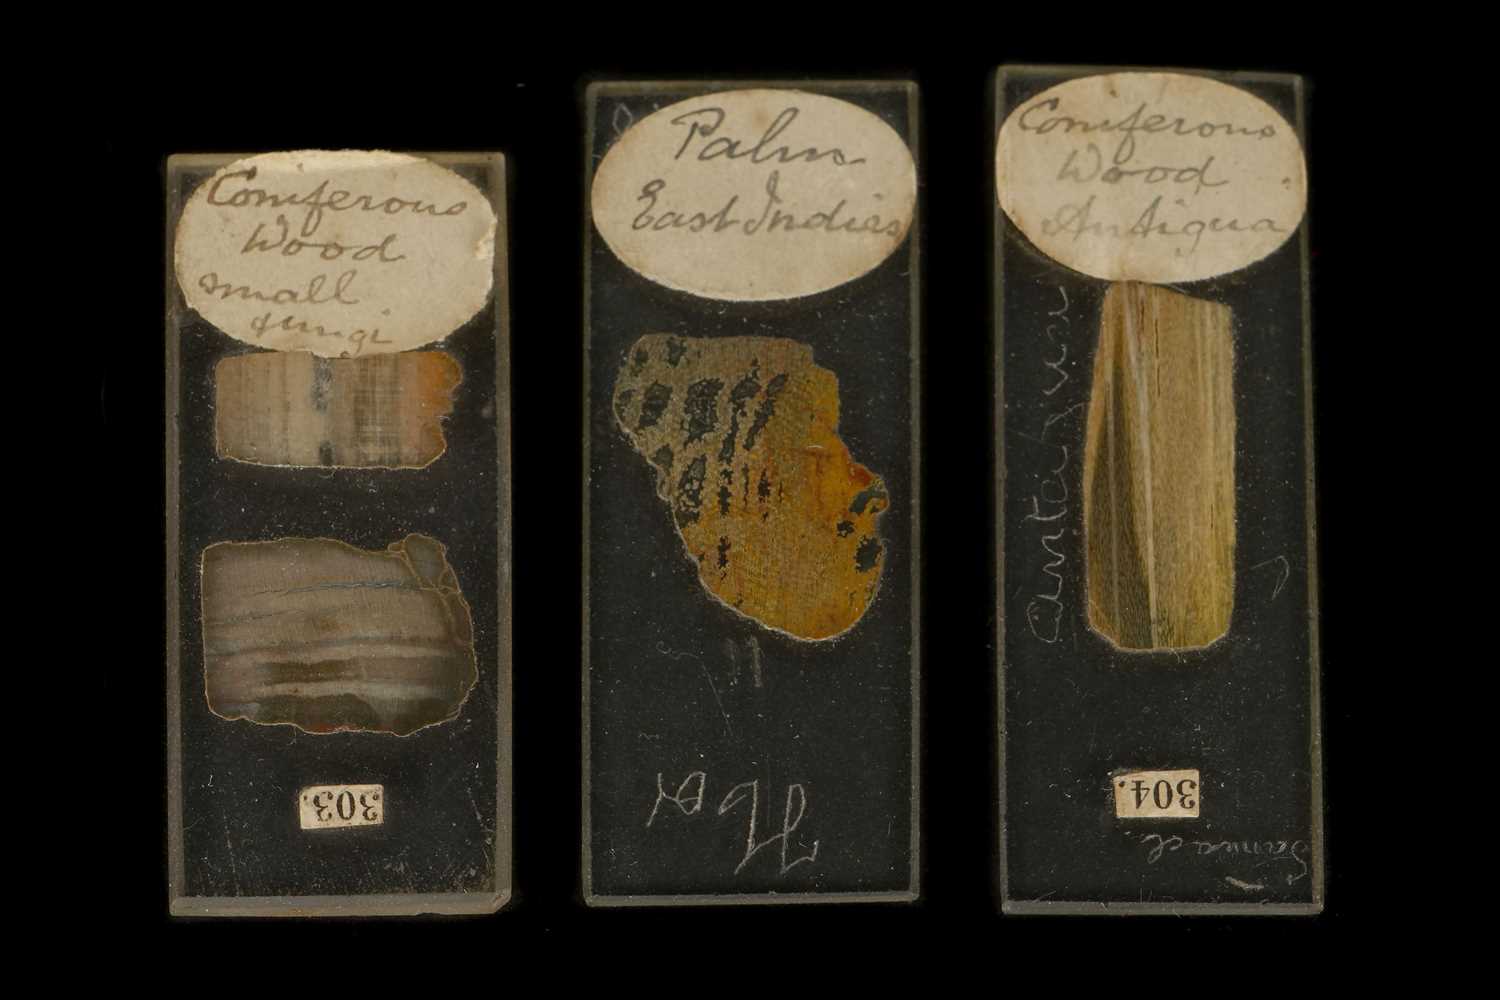 Coniferous
Wood
small
fungi
303.
Palm
East Indies
Coniferous
Wood
Antigua
antigua
304.